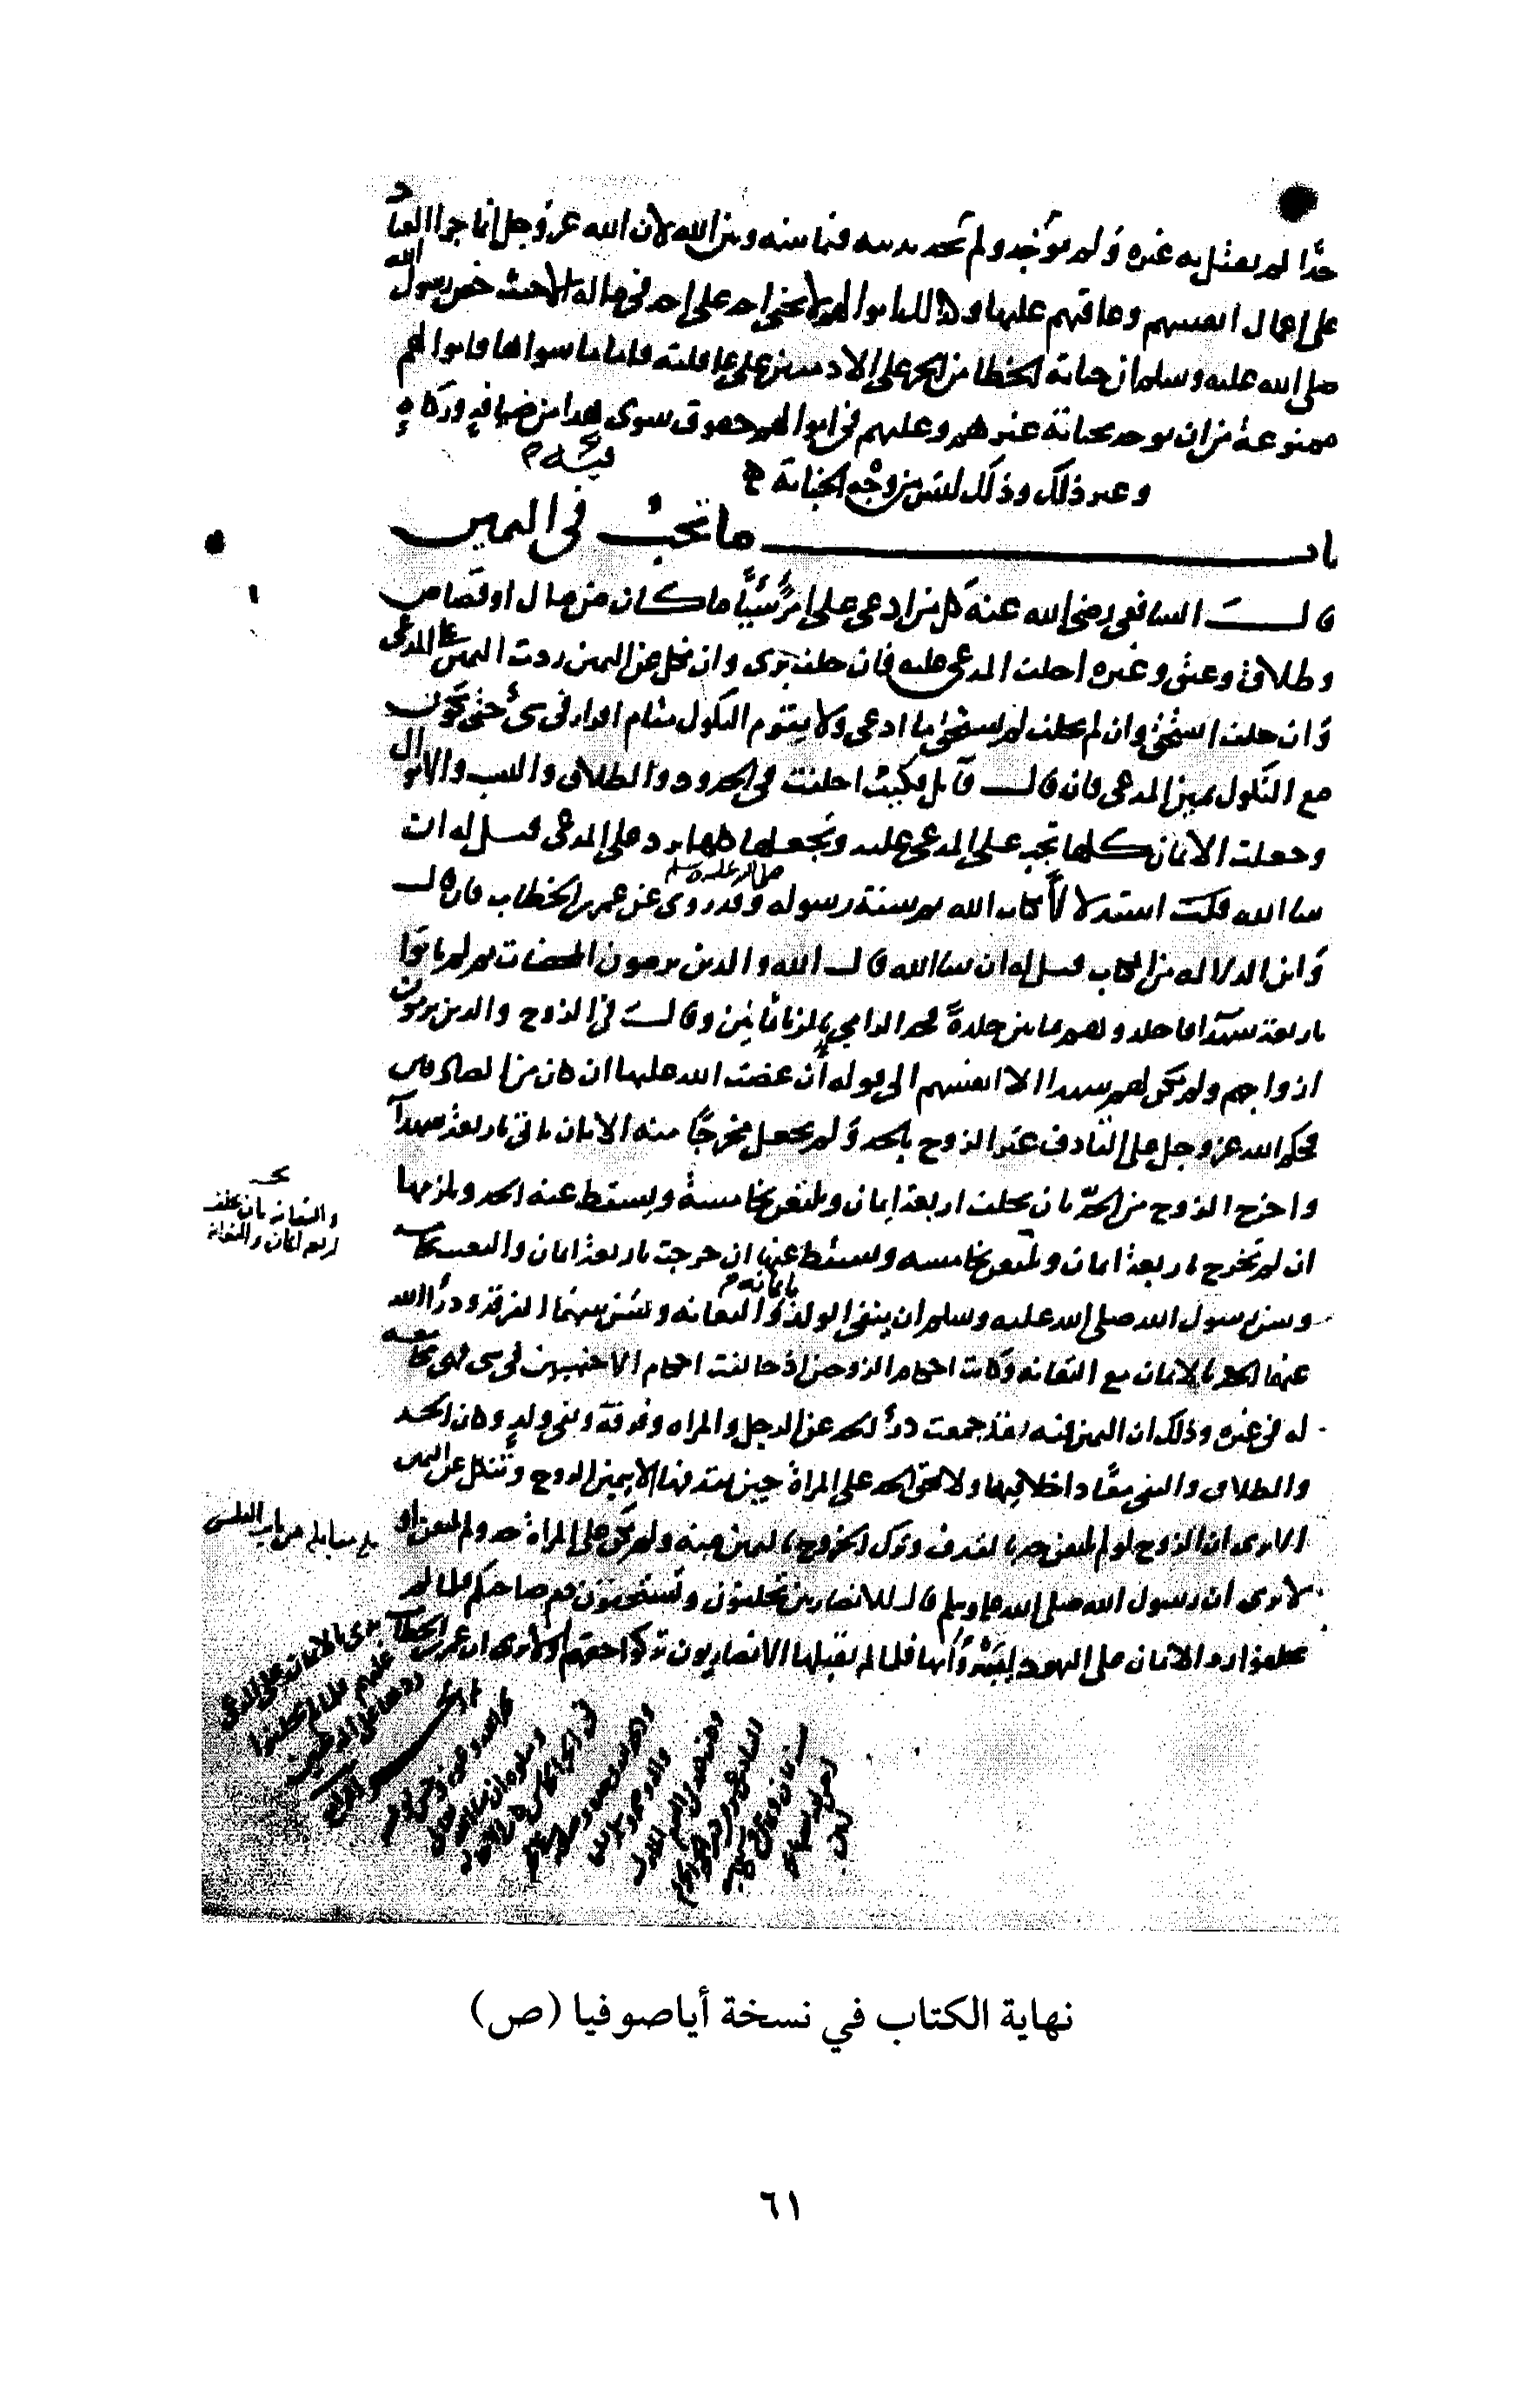 حدا لم يقتل به غيره ولم يؤخذ ولم تحد بدينه فيما بينه وبين الله لان الله عز وجل إنما جزا العباد
على اعمال انفسهم وعاقبهم عليها وكذلك اموالهم لا يجني احد على احد في ماله الا حيث خص رسول الله
صلى الله عليه وسلم ان جناية الخطا من الحر على الادميين على عاقلته فاما ما سواها فاموالهم
ممنوعة من ان توخذ بجناية غيرهم وعليهم في اموالهم حقوق سوى هذا من ضيافة وزكاة
وغير ذلك وذلك ليس من وجه الجناية
باب ما تجب في اليمين
قال الشافعي رضي الله عنه كل من ادعى على امرئ شيئا ما كان من مال او قصاص
وطلاق وعتق وغيره احلف المدعى عليه فان حلف برئ وان نكل عن اليمين ردت اليمين على المدعي
وان حلف استحق وان لم يحلف لم يستحق ما ادعى ولا يقوم النكول مقام اقرار في شيء حتى يكون
مع النكول يمين المدعي فان قال قائل فكيف احلفت في الحدود والطلاق والنسب والاموال
وجعلت الايمان كلها تجب على المدعى عليه وتجعلها كلها ترد على المدعي قيل له ان
شا الله قلت استدلالا بكتاب الله ثم سنة رسوله صلى الله عليه وسلم وقد روي عن عمر بن الخطاب فان قال
واين الدلالة من الكتاب قيل له ان شا الله قال الله والذين يرمون المحصنات ثم لم ياتوا
باربعة شهدا فاجلدوهم ثمانين جلدة فحد الرامي بالزنا ثمانين وقال في الزوج والذين يرمون
ازواجهم ولم يكن لهم شهدا الا انفسهم الى قوله أن غضب الله عليها ان كان من الصادقين
فحكم الله عز وجل على القاذف غير الزوج بالحد ولم يجعل مخرجا منه الا بان ياتي باربعة شهدآ
واخرج الزوج من الحد بان يحلف اربعة ايمان ويلتعن بخامسة ويسقط عنه الحد ويلزمها
ان لم تخرج باربعة ايمان وتلتعن بخامسه ويسقط عنها ان خرجت باربعة ايمان والتعنت
وسن رسول الله صلى الله عليه وسلم ان ينفي الولد والتعانه وسن بينهما الفرقة ودرأ الله
عنهما الحد بالايمان مع التعانه وكانت احكام الزوجين اذ خالفت احكام الاجنبيين في شي فهي مجامعه
له في غيره وذلك ان اليمين فيه قد جمعت درأ الحد عن الرجل والمراه وفرقة ونفي ولد وكان الحد
والطلاق والنفي معا داخلا فيها ولا يحق الحد على المراة حين يقذفها الا بيمين الزوج وتنكل عن اليمين
الا ترى ان الزوج لو لم يلتعن حد بالقذف وترك الخروج باليمين منه ولم يكن على المراة حد ولم تلتعن او
لا ترى ان رسول الله صلى الله عليه وسلم قال للانصاريين تحلفون وتستحقون دم صاحبكم فلما لم
يحلفوا رد الايمان على اليهود ليبرؤا بها فلما لم يقبلها الانصاريون تركوا حقهم أولا ترى ان عمر بن الخطاب بدى بالايمان على المدعى
عليهم فلما لم يحلفوا
ردها على المدعيين
نهاية الكتاب في نسخة أياصوفيا (ص)
٦١